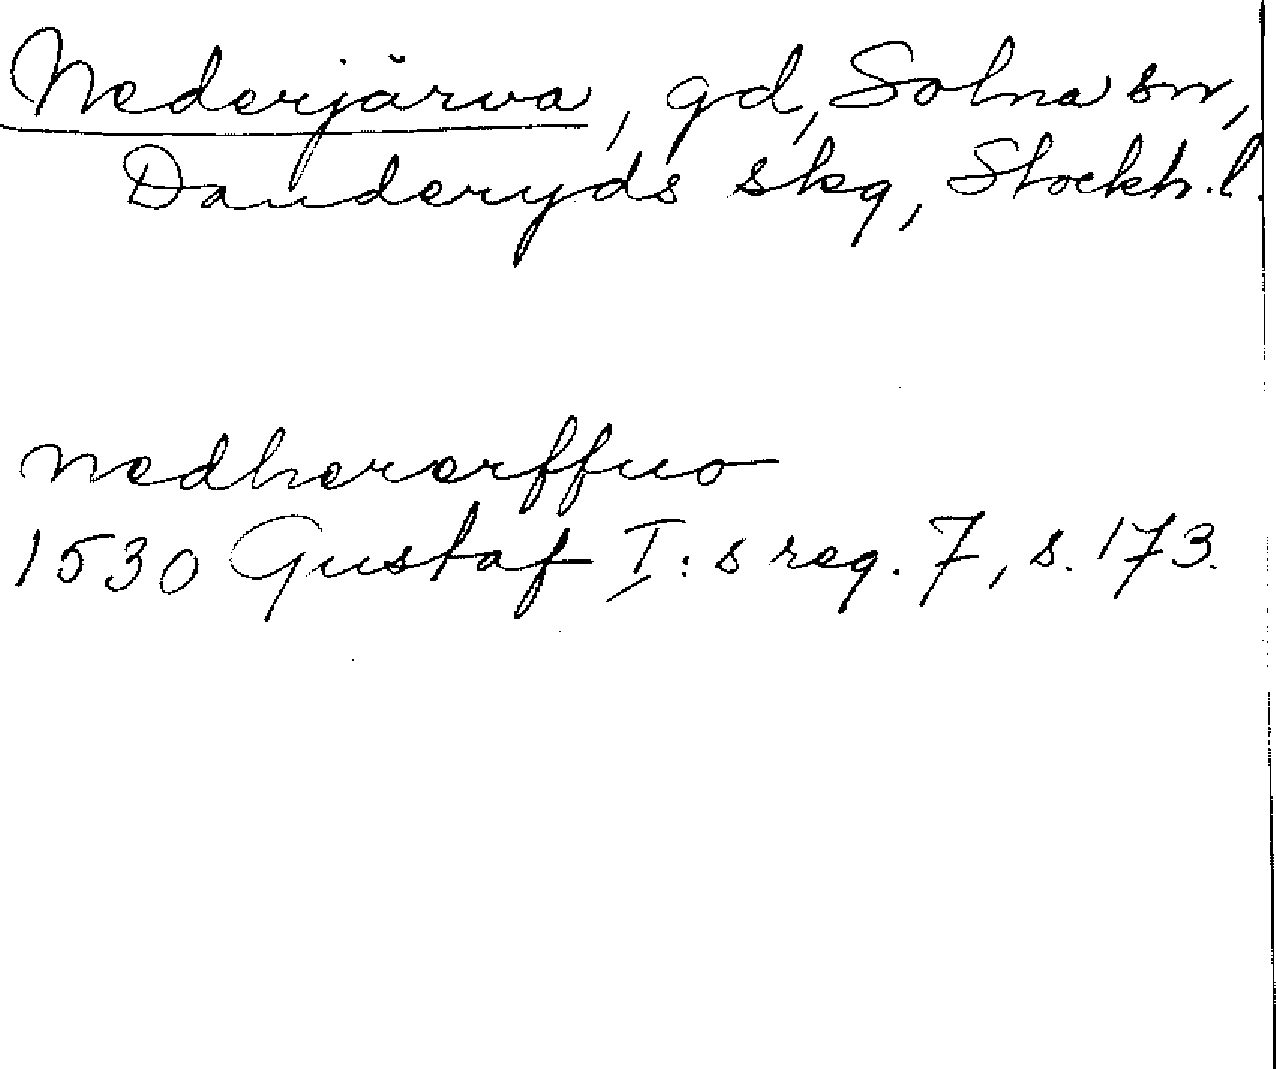 Nederjärva, gd, Solna sn,
Danderyds skg, Stockh. l.
nedhererffuo
1530 Gustaf I:s reg. 7, s. 173.